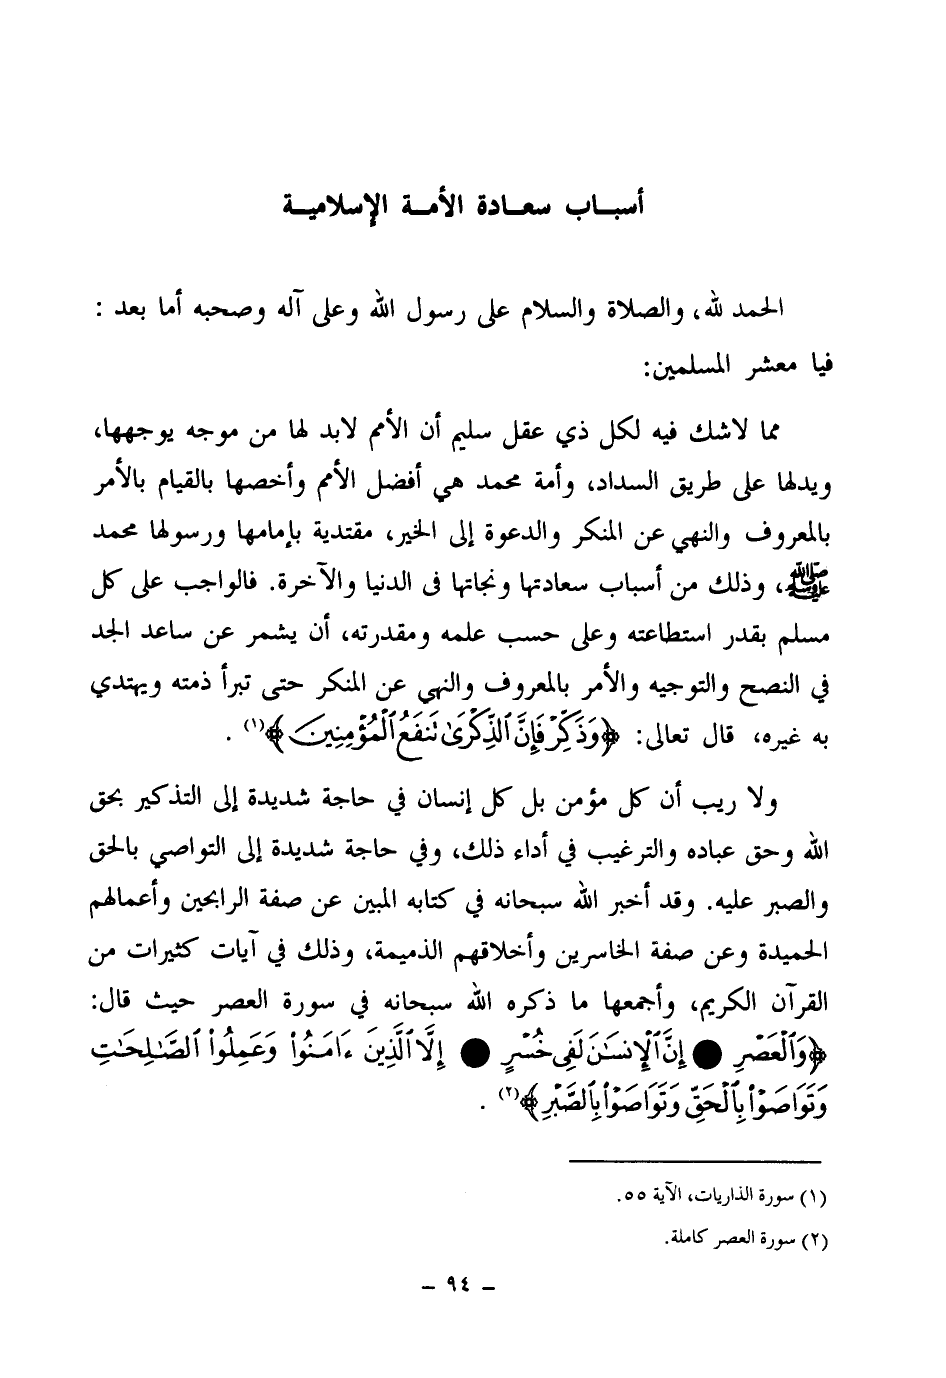 أسباب سعادة الأمة الإسلامية
الحمد لله، والصلاة والسلام على رسول الله وعلى آله وصحبه أما بعد :
فيا معشر المسلمين:
مما لاشك فيه لكل ذي عقل سليم أن الأمم لابد لها من موجه يوجهها،
ويدلها على طريق السداد، وأمة محمد هي أفضل الأمم وأخصها بالقيام بالأمر
بالمعروف والنهي عن المنكر والدعوة إلى الخير، مقتدية بإمامها ورسولها محمد
ﷺ، وذلك من أسباب سعادتها ونجاتها فى الدنيا والآخرة. فالواجب على كل
مسلم بقدر استطاعته وعلى حسب علمه ومقدرته، أن يشمر عن ساعد الجد
في النصح والتوجيه والأمر بالمعروف والنهي عن المنكر حتى تبرأ ذمته ويهتدي
به غيره، قال تعالى: ﴿وَذَكِّرْ فَإِنَّ ٱلذِّكْرَىٰ تَنفَعُ ٱلْمُؤْمِنِينَ﴾(١) .
ولا ريب أن كل مؤمن بل كل إنسان في حاجة شديدة إلى التذكير بحق
الله وحق عباده والترغيب في أداء ذلك، وفي حاجة شديدة إلى التواصي بالحق
والصبر عليه. وقد أخبر الله سبحانه في كتابه المبين عن صفة الرابحين وأعمالهم
الحميدة وعن صفة الخاسرين وأخلاقهم الذميمة، وذلك في آيات كثيرات من
القرآن الكريم، وأجمعها ما ذكره الله سبحانه في سورة العصر حيث قال:
﴿وَٱلْعَصْرِ ● إِنَّ ٱلْإِنسَٰنَ لَفِى خُسْرٍ ● إِلَّا ٱلَّذِينَ ءَامَنُوا۟ وَعَمِلُوا۟ ٱلصَّٰلِحَٰتِ
وَتَوَاصَوْا۟ بِٱلْحَقِّ وَتَوَاصَوْا۟ بِٱلصَّبْرِ﴾(٢) .
(١) سورة الذاريات، الآية ٥٥.
(٢) سورة العصر كاملة.
– ٩٤ –